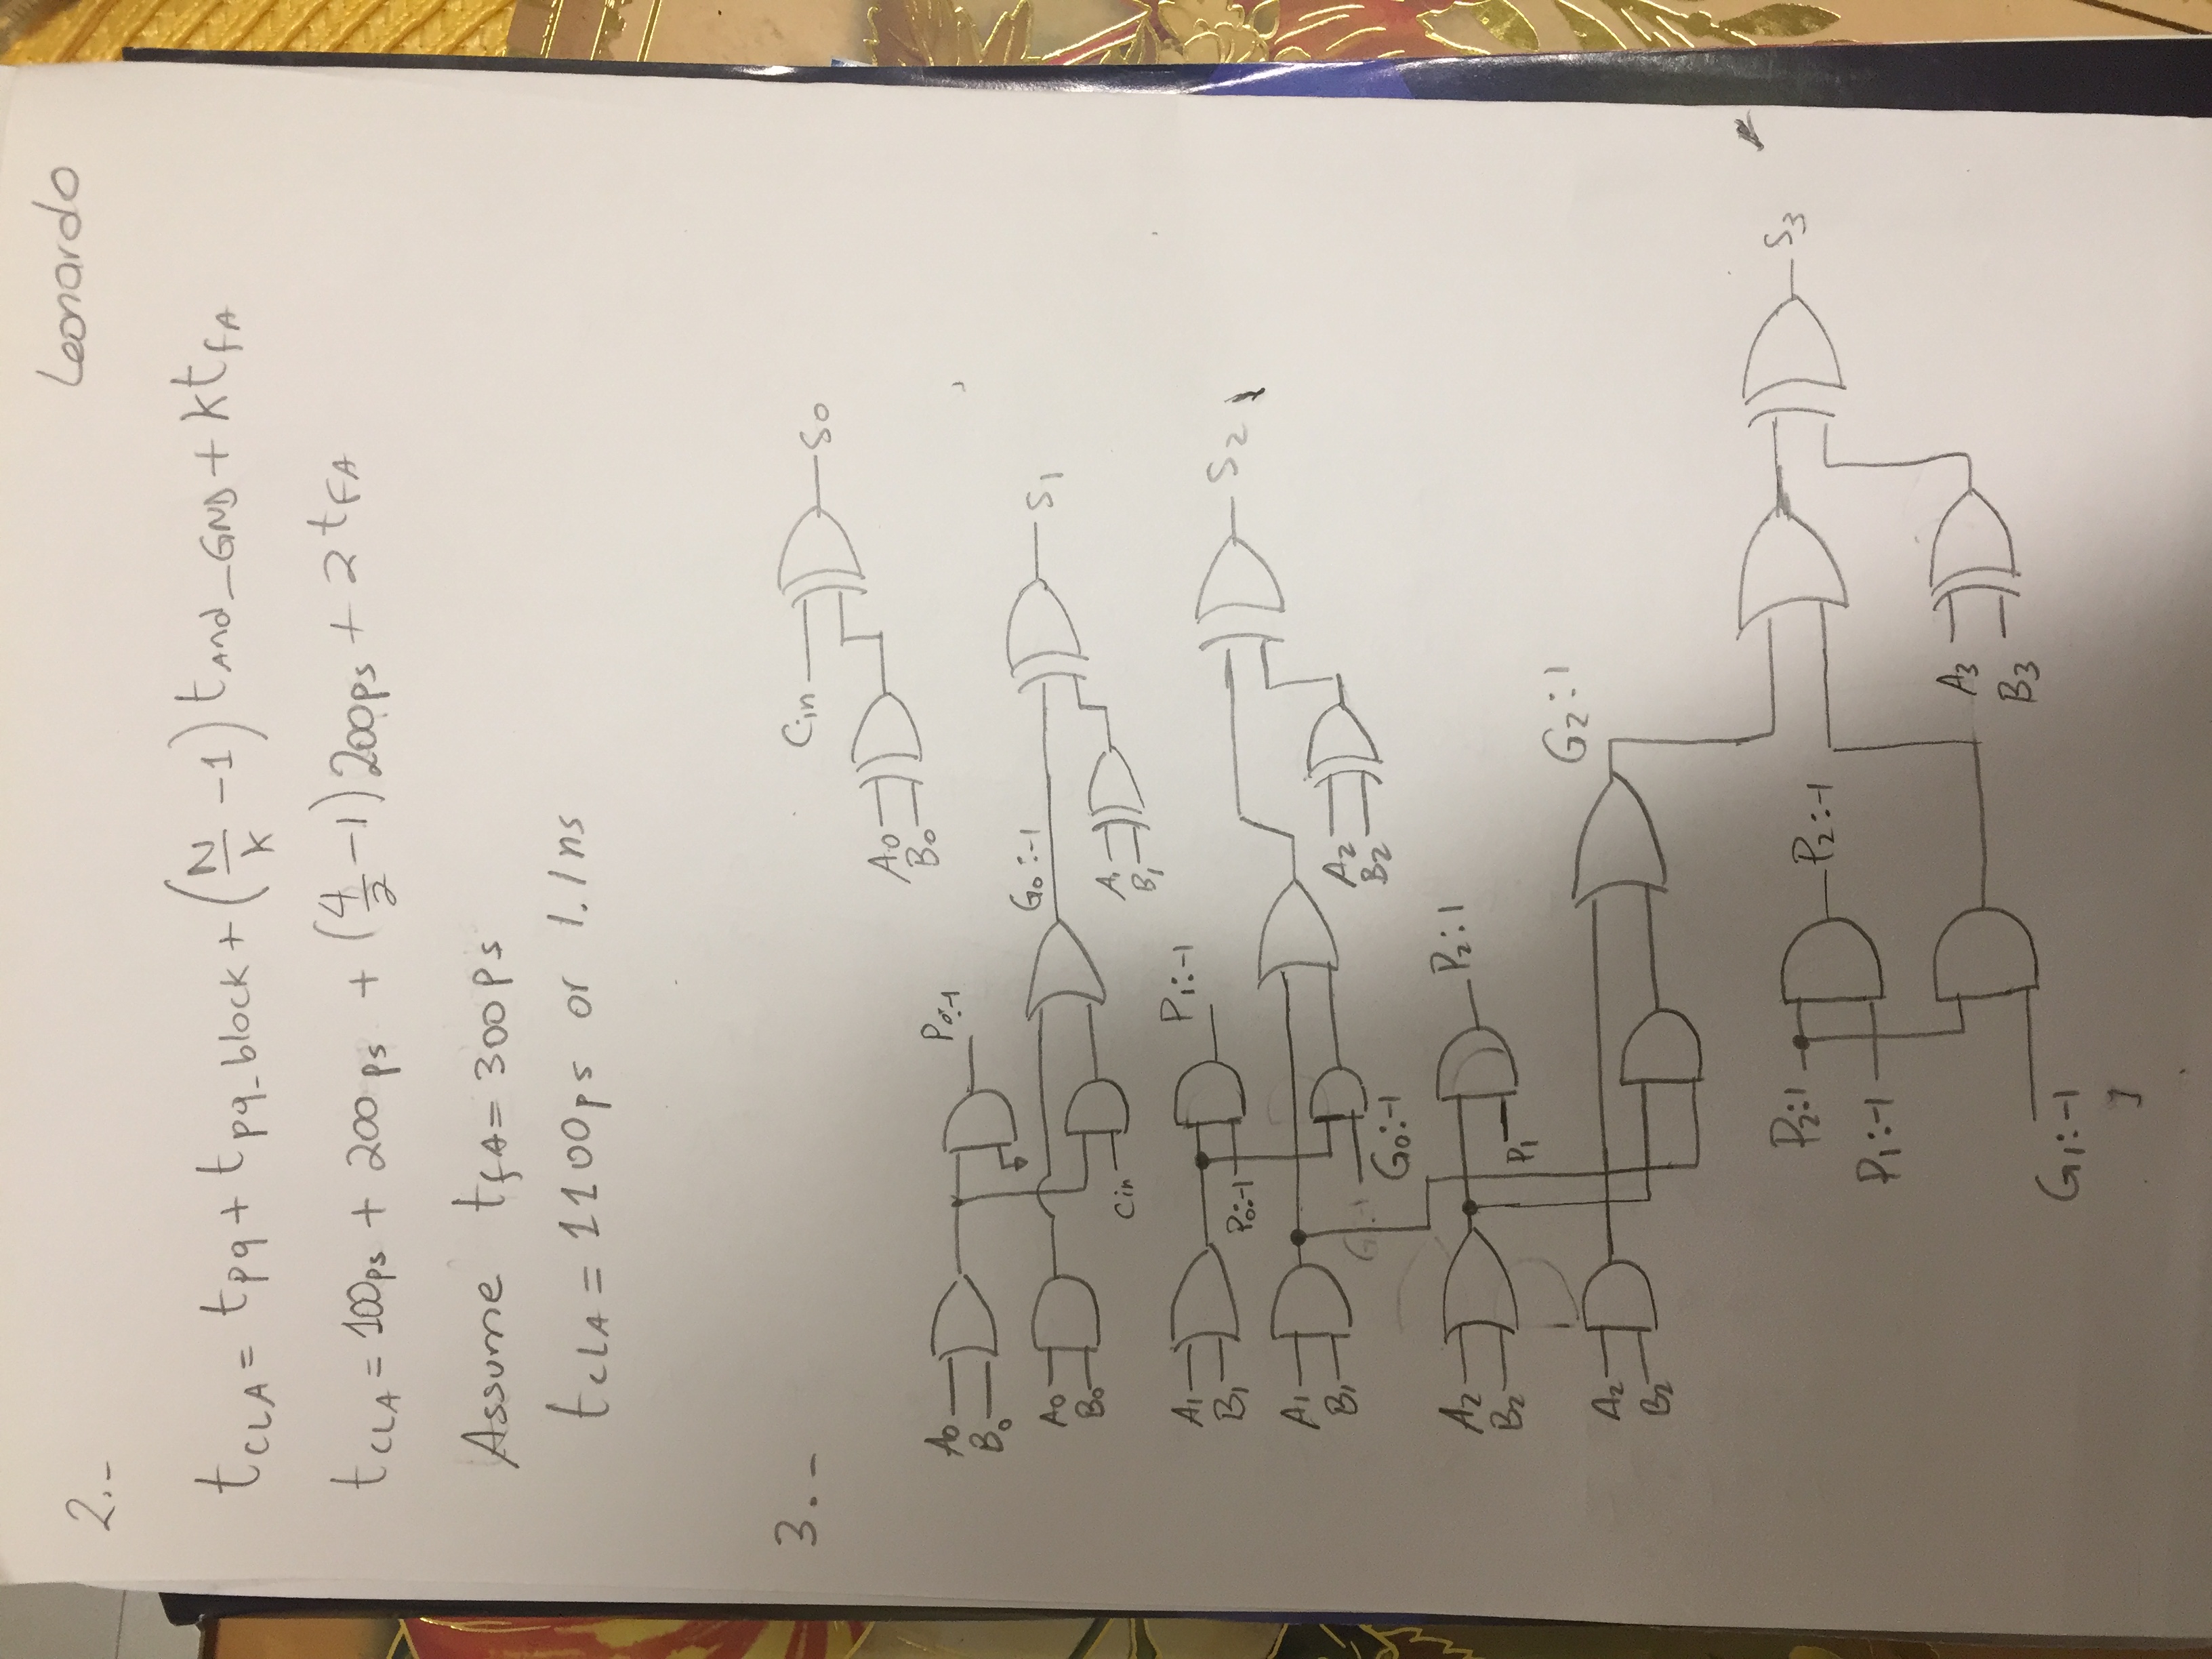 Leonardo
2.-
tCLA = tpq + tpq_block + (N/k -1) tAnd_GND + ktfA
tCLA = 100ps + 200 ps + (4/2 -1) 200ps + 2 tFA
Assume tfA = 300Ps
tCLA = 1100ps or 1.1ns
3.-
Cin S0
A0
B0
A0 P0:-1
B0
A0 G0:-1 S1
B0
Cin A1
B1
A1 P1:-1
B1 P0:-1
S2
A1
B1 A2
B2
G0:-1
A2 P2:1
B2 P1
G2:1
A2
B2
P2:1 P2:-1 S3
P1:-1
A3
B3
G1:-1